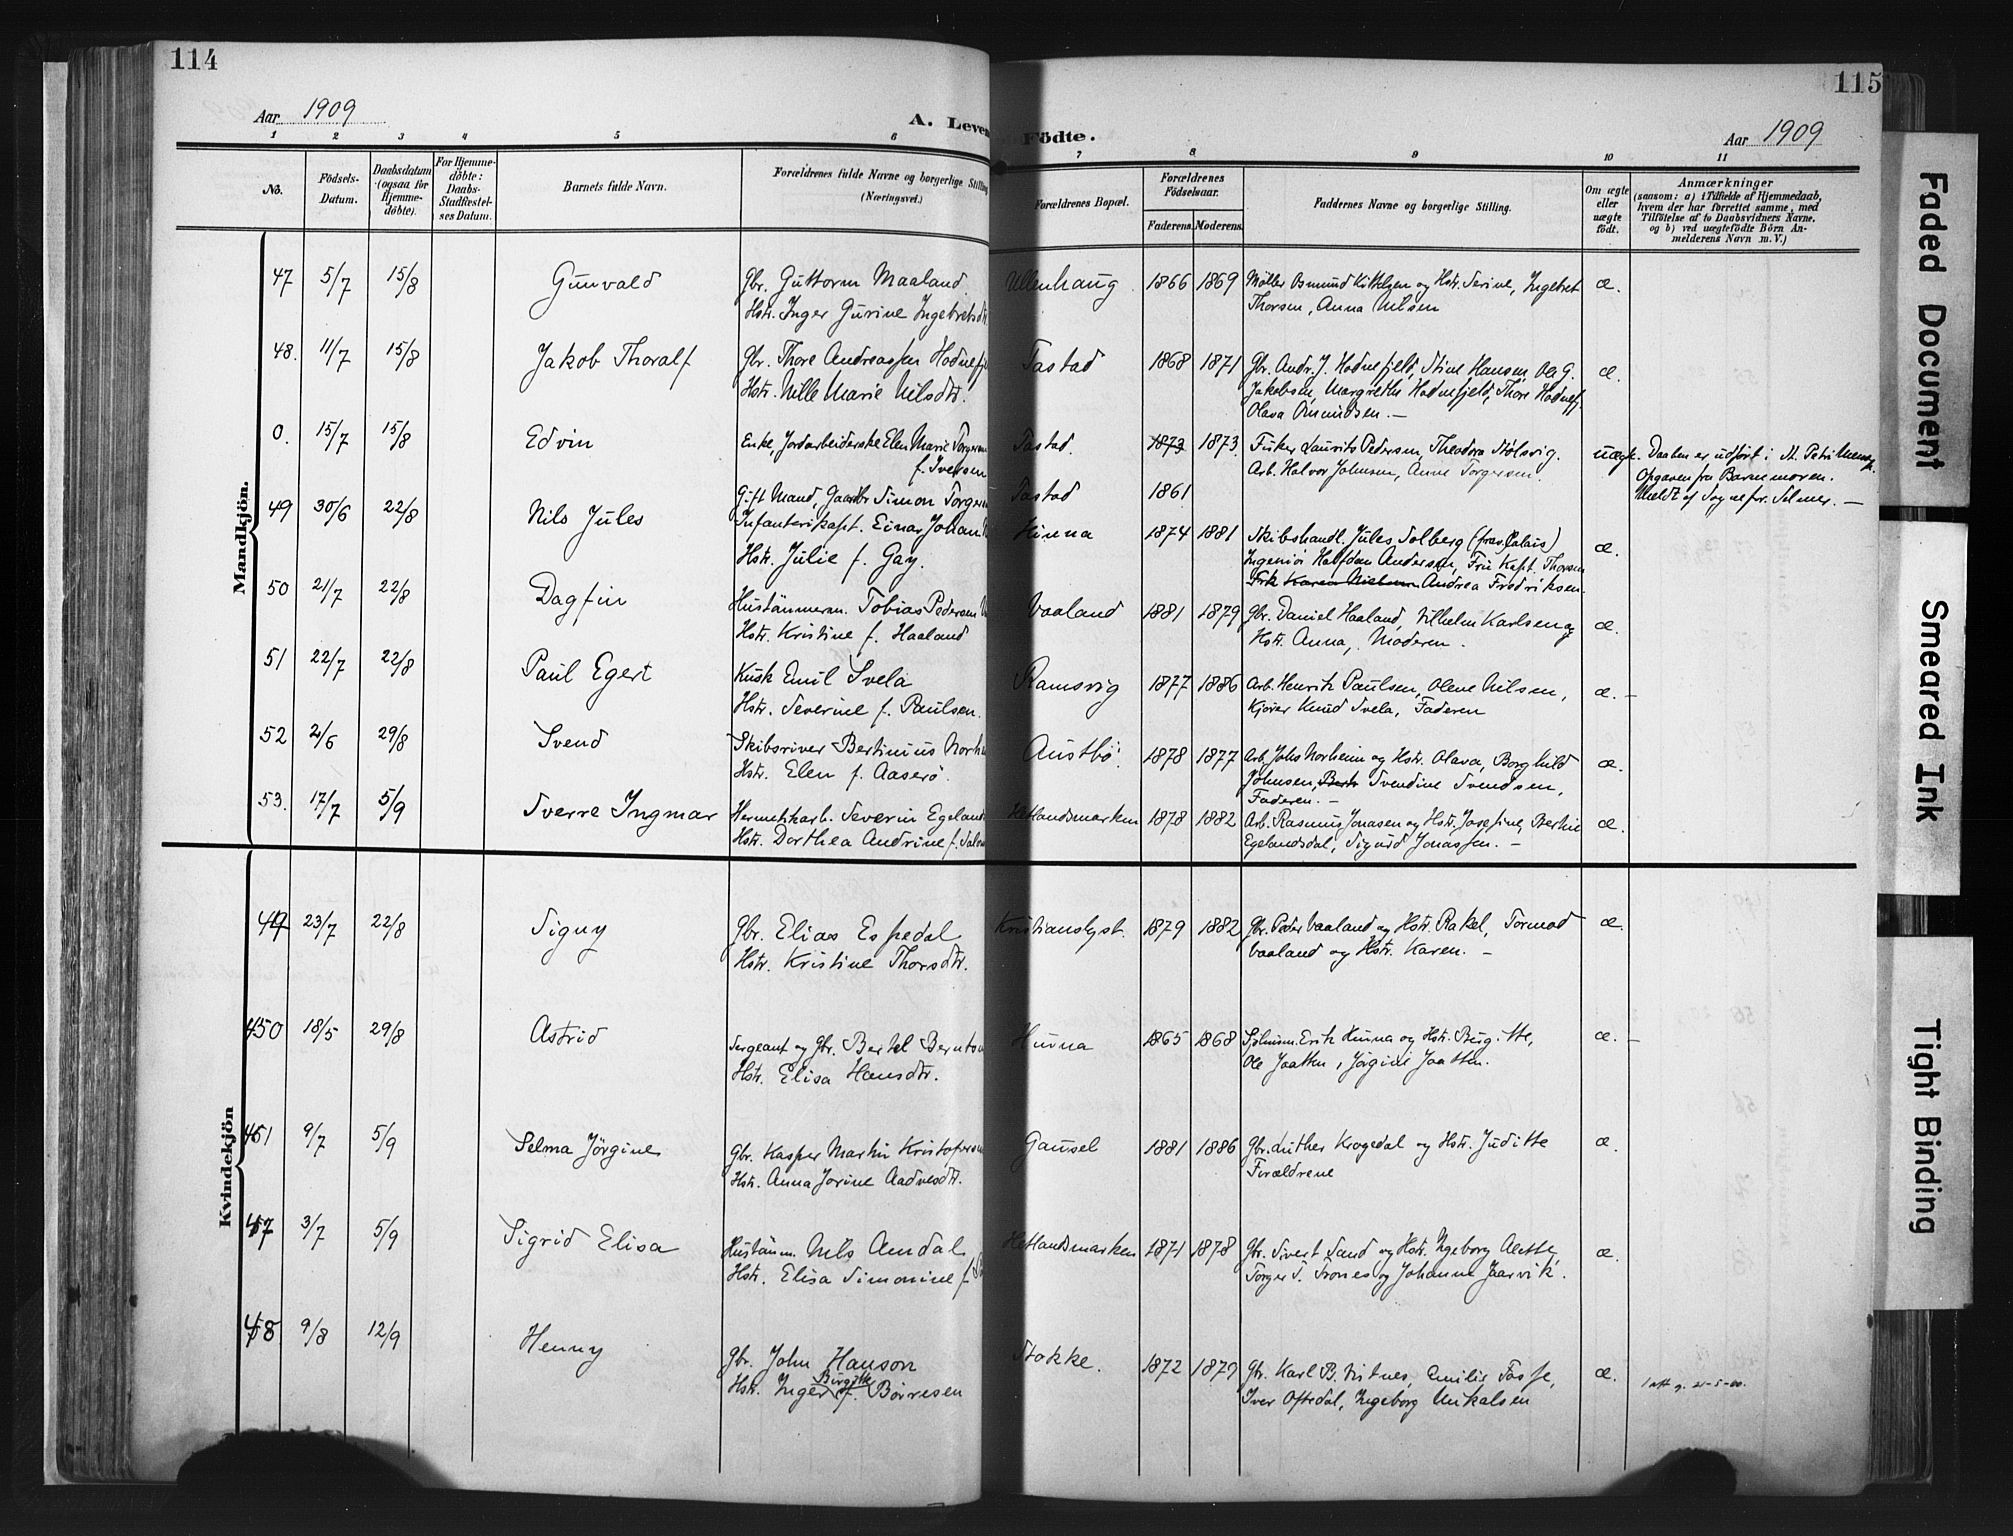 114
Aar 1909
A. Leven
1 2 3 4 5 6
No.
Födsels-
Datum.
Daabsdatum
(ogsaa for
Hjemme-
döbte).
For Hjemme-
döbte:
Daabs-
Stadfæstel-
ses Datum.
Barnets fulde Navn.
Forældrenes fulde Navne og borgerlige Stilling
(Næringsvei.)
Mandkjön.
47 5/7 15/8 Gunvald Gbr. Guttorm Maaland
Hstr. Inger Gurine Ingebretsdtr.
48. 11/7 15/8 Jakob Thoralf Gbr. Thore Andreassen Hodnefj
Hstr. Nille Marie Nilsdtr.
0. 15/7 15/8 Edvin Enke, Jordarbeiderske Elen Marie Torgersen
f. Iversen
Gift Mand, Gaardbr Simon Torgersen
49 30/6 22/8 Nils Jules Infanterikapt. Einar Johan
Hstr. Julie f. Gay.
50 21/7 22/8 Dagfin Hustömmerm. Tobias Pedersen
Hstr. Kristine f. Haaland
51 22/7 22/8 Paul Egert Kusk Emil Svela
Hstr. Severine f. Paulsen.
52 2/6 29/8 Svend Skibsriver Bertinius Norh
Hstr. Elen f. Aaserö.
53. 17/7 5/9 Sverre Ingmar Hermetikarb. Severin Egeland
Hstr. Dorthea Andrine f. Salve
Kvindekjön
49 23/7 22/8 Signy Gbr. Elias Espedal
Hstr. Kristine Thorsdtr.
50 18/5 29/8 Astrid Sergeant og Gbr. Bertel Berntsen
Hstr. Elisa Hansdtr.
51 9/7 5/9 Selma Jörgine Gbr. Kasper Martin Kristofersen
Hstr. Anna Jorine Aadnesdtr.
47 3/7 5/9 Sigrid Elisa Hustömm. Nils Amdal
Hstr. Elisa Simonine f.
48 9/8 12/9 Henny Gbr. John Hanson
Birgitte
Hstr. Inger f. Börresen
115
Födte.
Aar 1909
7 8 9 10 11
Forældrenes Bopæl.
Forældrenes
Födselsaar.
Faderens. Moderens.
Faddernes Navne og borgerlige Stilling.
Om ægte
eller
uægte
födt.
Anmærkninger
(saasom: a) i Tilfælde af Hjemmedaab,
hvem der har forrettet samme, med
Tilföielse af to Daabsvidners Navne,
og b) ved uægtefödte Börn An-
melderens Navn m. V.)
Ullenhaug 1866 1869 Möller Osmund Kittelsen og Hstr. Serine, Ingebret æ.
Thorsen, Anna Nilsen
Tastad 1868 1871 Gbr. Andr. J. Hodnefjeld, Stine Hansen, Ole G. æ.
Jakobsen, Margrethe Hodnefjeld, Thore Hodnefj.
Olava Omundsen. —
Tastad. 1873 1873. Fisker Laurits Pedersen, Theodora Stölsvig. uægte. Daaben er udfört i St. Petri Menigh.
Arb. Halvor Johnsen, Anne Torgersen. Opgaven fra Barnemoren.
Tastad 1861 Meldt af Sognepr. Selmer. —
Hinna 1874 1881 Skibshandl. Jules Solberg (frav. Calais) æ.
Ingeniör Halfdan Andersen, Fru Kapt. Thorsen
Frk Karen Nielsen Andrea Fredriksen.
Vaaland 1881 1879 Gbr. Daniel Haaland, Vilhelm Karlsen og æ.
Hstr. Anna, Moderen.
Ramsvig 1877 1886 Arb. Henrik Paulsen, Olene Nilsen, æ. —
Kjörer Knud Svela, Faderen
Austbö 1878 1877 Arb. Johs Norheim og Hstr. Olava, Borghild æ.
Johnsen, Svendine Svendsen,
Faderen. —
Hetlandsmarken 1878 1882 Arb. Rasmus Jonasen og Hstr. Josefine, Bertine æ.
Egelandsdal, Sigurd Jonassen. —
Kristianslyst. 1879 1882 Gbr. Peder Vaaland og Hstr. Rakel, Tormod æ.
Vaaland og Hstr. Karen. —
Hinna 1865 1868 Erik Hinna og Hstr. Birgitte, æ. —
Ole Jaatten, Jörgine Jaatten.
Gausel 1881 1886 Gbr. Luther Krogedal og Hstr. Juditte æ.
Forældrene
Hetlandsmarken 1871 1878 Gbr. Sivert Sand og Hstr. Ingeborg Alette, æ.
Torger T. Trones og Johanne Jaarvik.
Stokke. 1872 1879 Gbr. Karl B. Vistnes, Emilie Tasse, æ.
Iver Oftedal, Ingeborg Mikalsen
Faded Document
Smeared Ink
Tight Binding